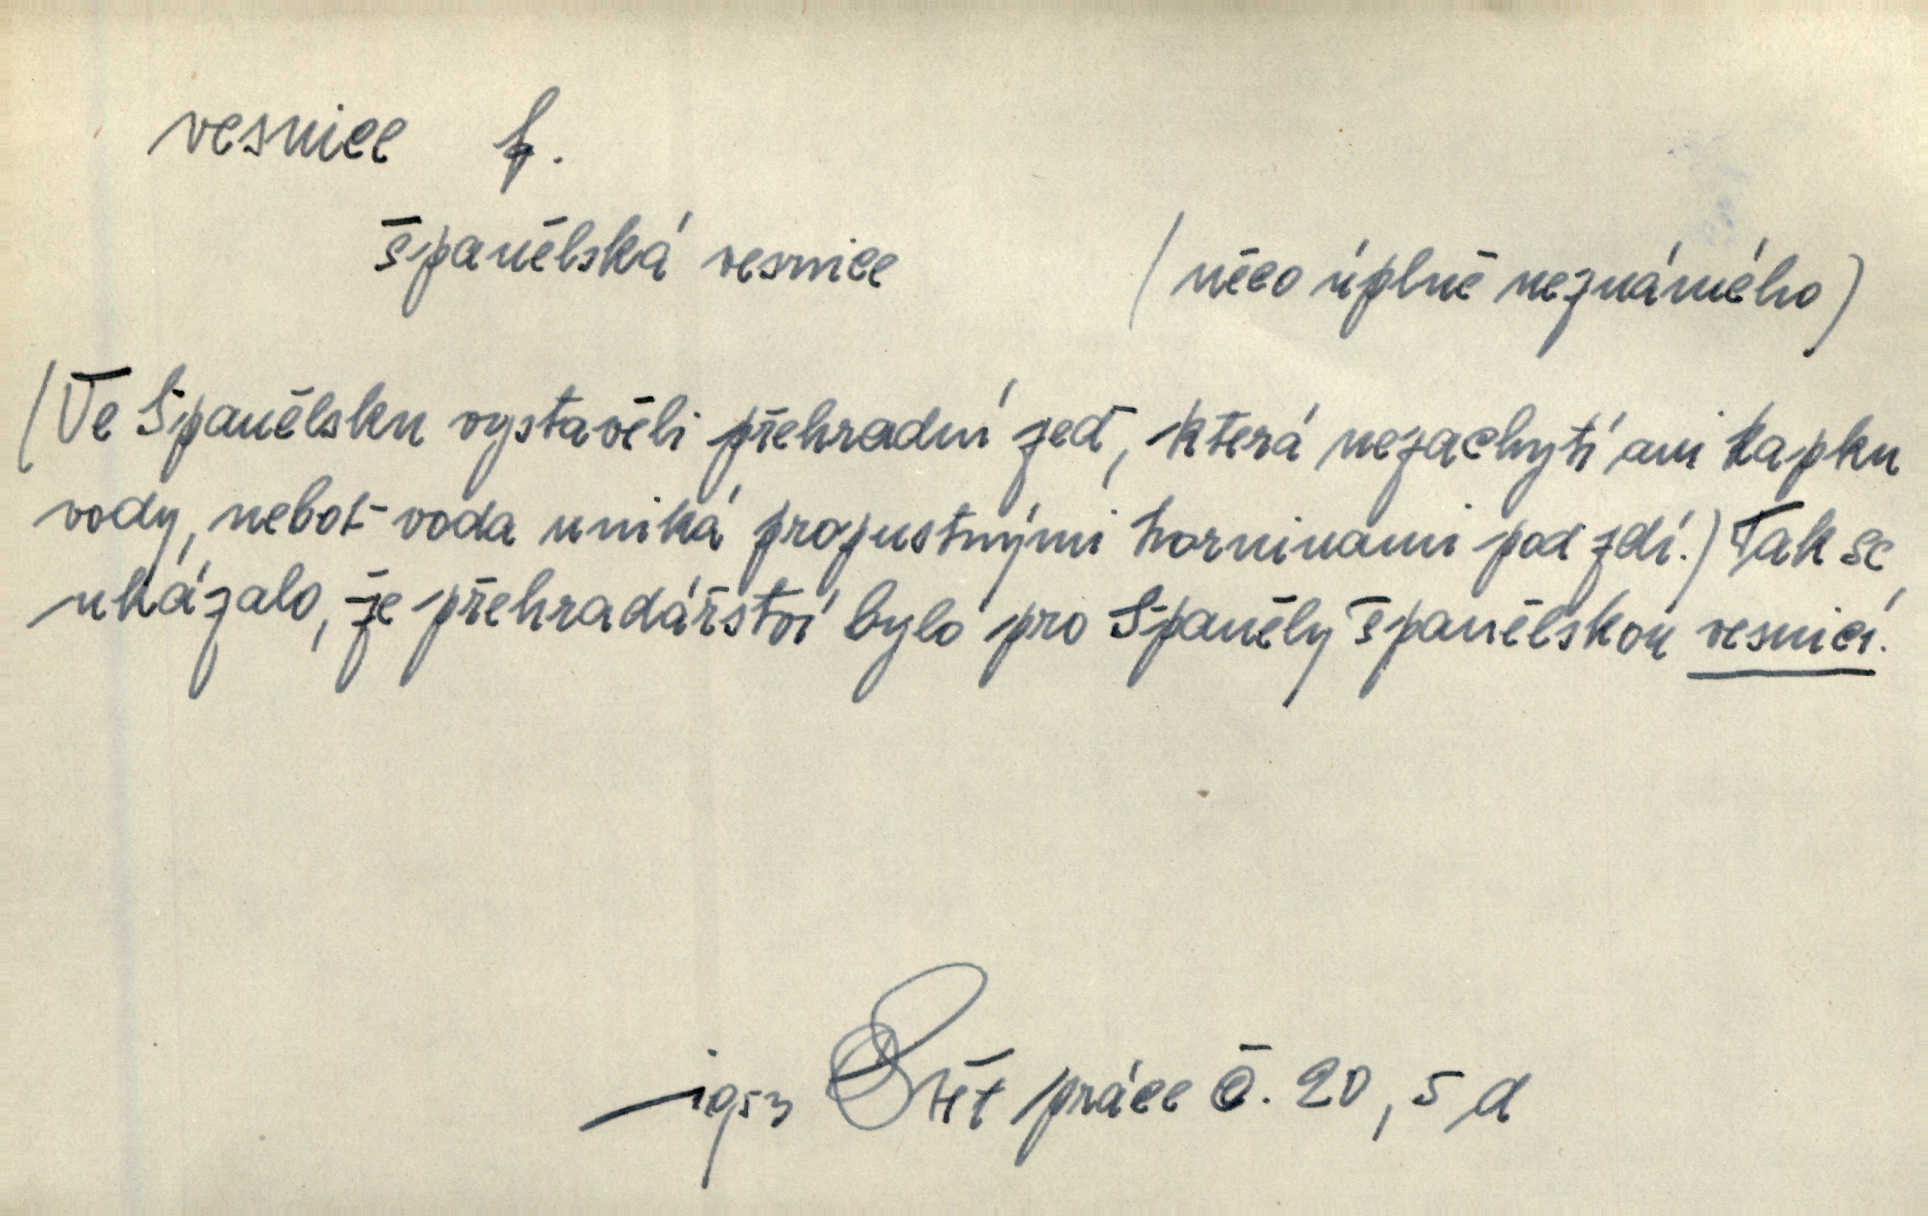 vesnice f.
španělská vesnice (něco úplně neznámého)
(Ve Španělsku vystavěli přehradní zeď, která nezachytí ani kapku
vody, neboť voda uniká propustnými horninami pod zdí.) Tak se
ukázalo, že přehradářství bylo pro Španěly španělskou vesnicí.
1953 Svět práce č. 20, 5 d